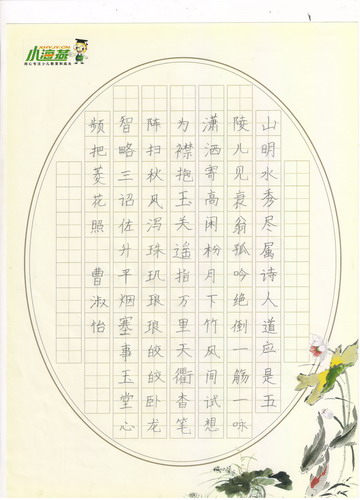 小海燕
山明水秀尽属诗人道应是五
陵儿见衰翁孤吟绝倒一觞一咏
潇洒寄高闲粉月下竹风间试想
为襟抱玉关遥指万里天衢杳笔
阵扫秋风泻珠玑琅琅皎皎卧龙
智略三诏佐升平烟塞事玉堂心
频把菱花照 曹淑怡